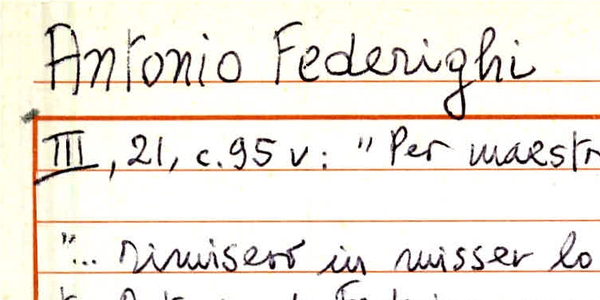 Antonio Federighi
III, 21, c. 95 v: "Per maestr
"... rimisero in misser lo